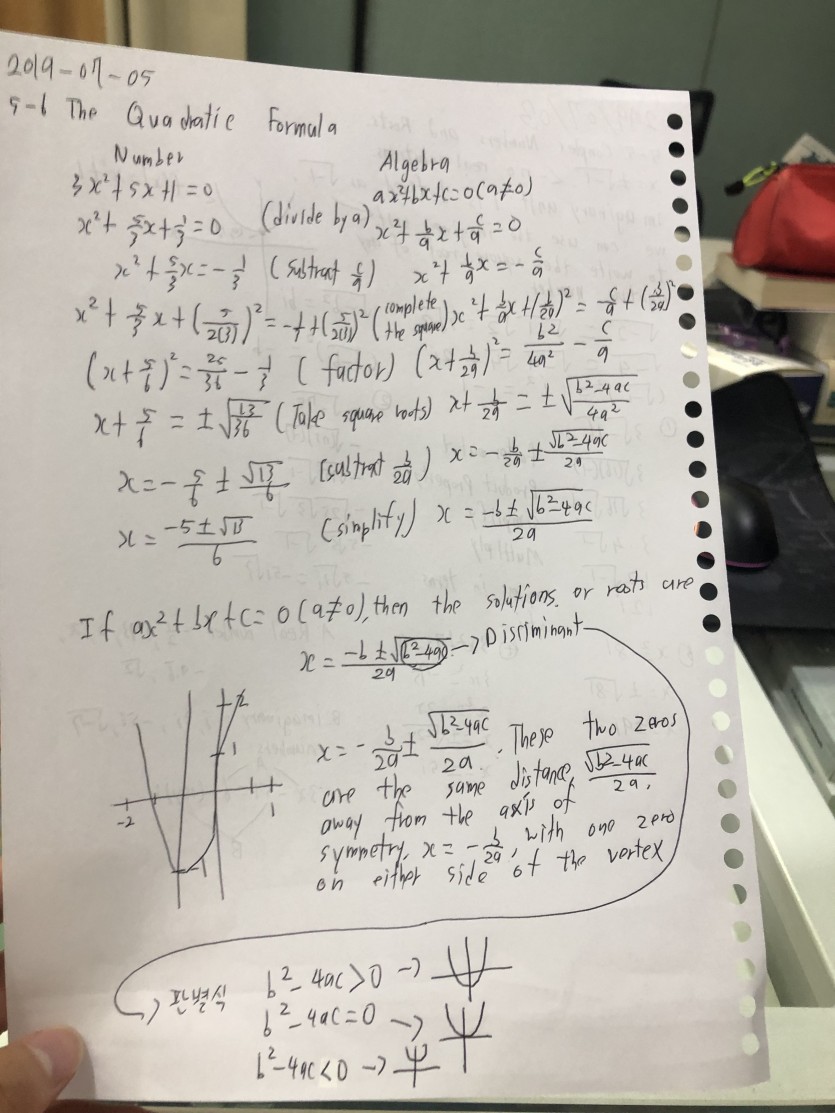 2019-07-05
5-6 The Quadratic Formula
Number Algebra
3x²+5x+1=0 ax²+bx+c=0(a≠0)
x²+5/3x+1/3=0 (divide by a) x²+b/ax+c/a=0
x²+5/3x=-1/3 (subtrat c/a) x²+b/ax=-c/a
x²+5/3x+(5/2(3))²=-1/3+(5/2(3))² (complete the square) x²+b/ax+(b/2a)²=-c/a+(b/2a)²
(x+5/6)²=25/36-1/3 (factor) (x+b/2a)²=b²/4a²-c/a
x+5/6=±√13/36 (Take square roots) x+b/2a=±√b²-4ac/4a²
x=-5/6±√13/6 (subtrat b/2a) x=-b/2a±√b²-4ac/2a
x=-5±√13/6 (simplify) x=-b±√b²-4ac/2a
If ax²+bx+c=0(a≠0), then the solutions. or roots are
x=-b±√b²-4ac/2a → Discriminant
2
1
-2 1
-1
x=-b/2a±√b²-4ac/2a. These two zeros
are the same distance, √b²-4ac/2a,
away from the axis of
symmetry, x=-b/2a, with one zero
on either side of the vertex
→ 판별식 b²-4ac>0 →
b²-4ac=0 →
b²-4ac<0 →